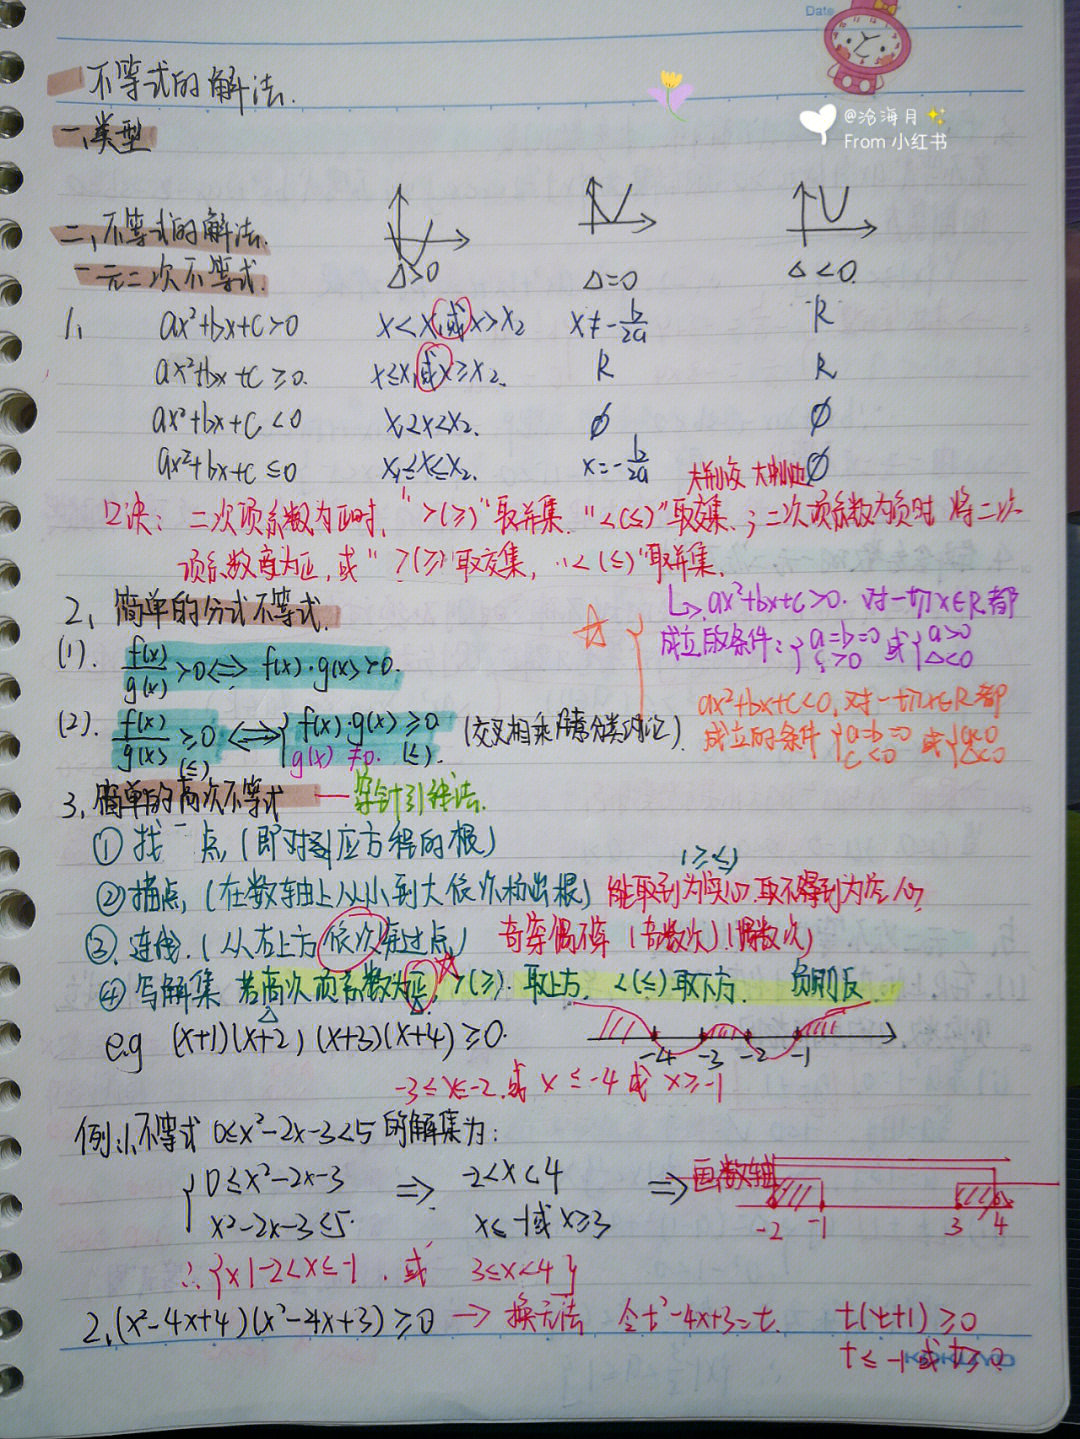 Date
@沧海月
From 小红书
不等式的解法.
一、类型
二、不等式的解法.
一元二次不等式.
Δ>0 Δ=0 Δ<0.
1、 ax²+bx+c>0 x<x₁或x>x₂ x≠-b/2a R
ax²+bx+c≥0. x≤x₁或x≥x₂. R R
ax²+bx+c<0 x₁<x<x₂. ∅ ∅
ax²+bx+c≤0 x₁≤x≤x₂. x=-b/2a ∅
口诀：二次项系数为正时，“>(≥)”取并集，“<(≤)”取交集.；二次项系数为负时 将二次
项系数变为正，或“>(≥)”取交集，“<(≤)”取并集.
2、简单的分式不等式.
↳ ax²+bx+c>0. 对一切x∈R都
成立的条件：{a=b=0 c>0 或{a>0 Δ<0
(1). f(x)/g(x)>0⟺f(x)·g(x)>0.
ax²+bx+c<0,对一切x∈R都
成立的条件{a=b=0 c<0 或{a<0 Δ<0
(2). f(x)/g(x)≥0 (≤) ⟺{f(x)·g(x)≥0 (≤). g(x)≠0. (交叉相乘 分类讨论).
3、简单的高次不等式 — 穿针引线法.
① 找一点 (即对应方程的根)
(≥≤)
②描点, (在数轴上从小到大依次标出根) 能取到为实心, 取不得到为空心
③、连线. (从右上方依次穿过点) 奇穿偶不穿 (奇数次) (偶数次)
④写解集 若高次项系数为正, >(≥). 取上方. <(≤)取下方. 负则反
e.g (x+1)(x+2)(x+3)(x+4)≥0.
-4 -3 -2 -1
-3≤x≤-2.或 x≤-4 或 x≥-1
例:1、不等式 0≤x²-2x-3<5 的解集为：
{0≤x²-2x-3 ⇒ -2<x<4 ⇒ 画数轴
x²-2x-3<5. x≤-1或x≥3
-2 -1 3 4
∴{x|-2<x≤-1.或 3≤x<4}
2、(x²-4x+4)(x²-4x+3)≥0 → 换元法 令t²-4x+3=t. t(t+1)≥0
t≤-1或t≥0
KOKUYO